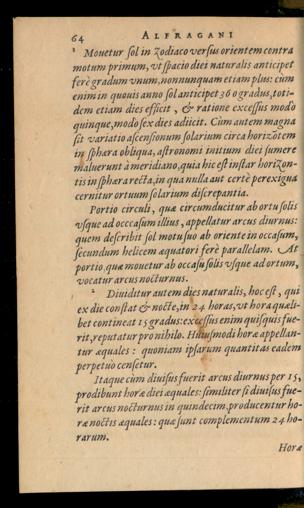 64 ALFRAGANI
2 Mouetur sol in Zodiaco versus orientem contra
motum primum, vt spacio diei naturalis anticipet
ferè gradum vnum, nonnunquam etiam plus: cùm
enim in quouis anno sol anticipet 360 gradus, toti-
dem etiam dies efficit, & ratione excessus modò
quinque, modò sex dies adiicit. Cùm autem magna
sit variatio ascensionum solarium circa horizōtem
in sphæra obliqua, astronomi initium diei sumere
maluerunt à meridiano, quia hic est instar horizon-
tis in sphæra recta, in qua nulla aut certè perexigua
cernitur ortuum solarium discrepantia.
Portio circuli, quæ circumducitur ab ortu solis
vsque ad occcasum illius, appellatur arcus diurnus:
quem describit sol motu suo ab oriente in occasum,
secundum helicem æquatori ferè parallelam. At
portio, quæ mouetur ab occasu solis vsque ad ortum,
vocatur arcus nocturnus.
2 Diuiditur autem dies naturalis, hoc est, qui
ex die constat & nocte, in 24 horas, vt hora quæli-
bet contineat 15 gradus: excessus enim quisquis fue-
rit, reputatur pro nihilo. Huiusmodi horæ appellan-
tur æquales: quoniam ipsarum quantitas eadem
perpetuò censetur.
Itaque cùm diuisus fuerit arcus diurnus per 15,
prodibunt horæ diei æquales: similiter si diuisus fue-
rit arcus nocturnus in quindecim, producentur ho-
ræ noctis æquales: quæ sunt complementum 24 ho-
rarum.
Horæ